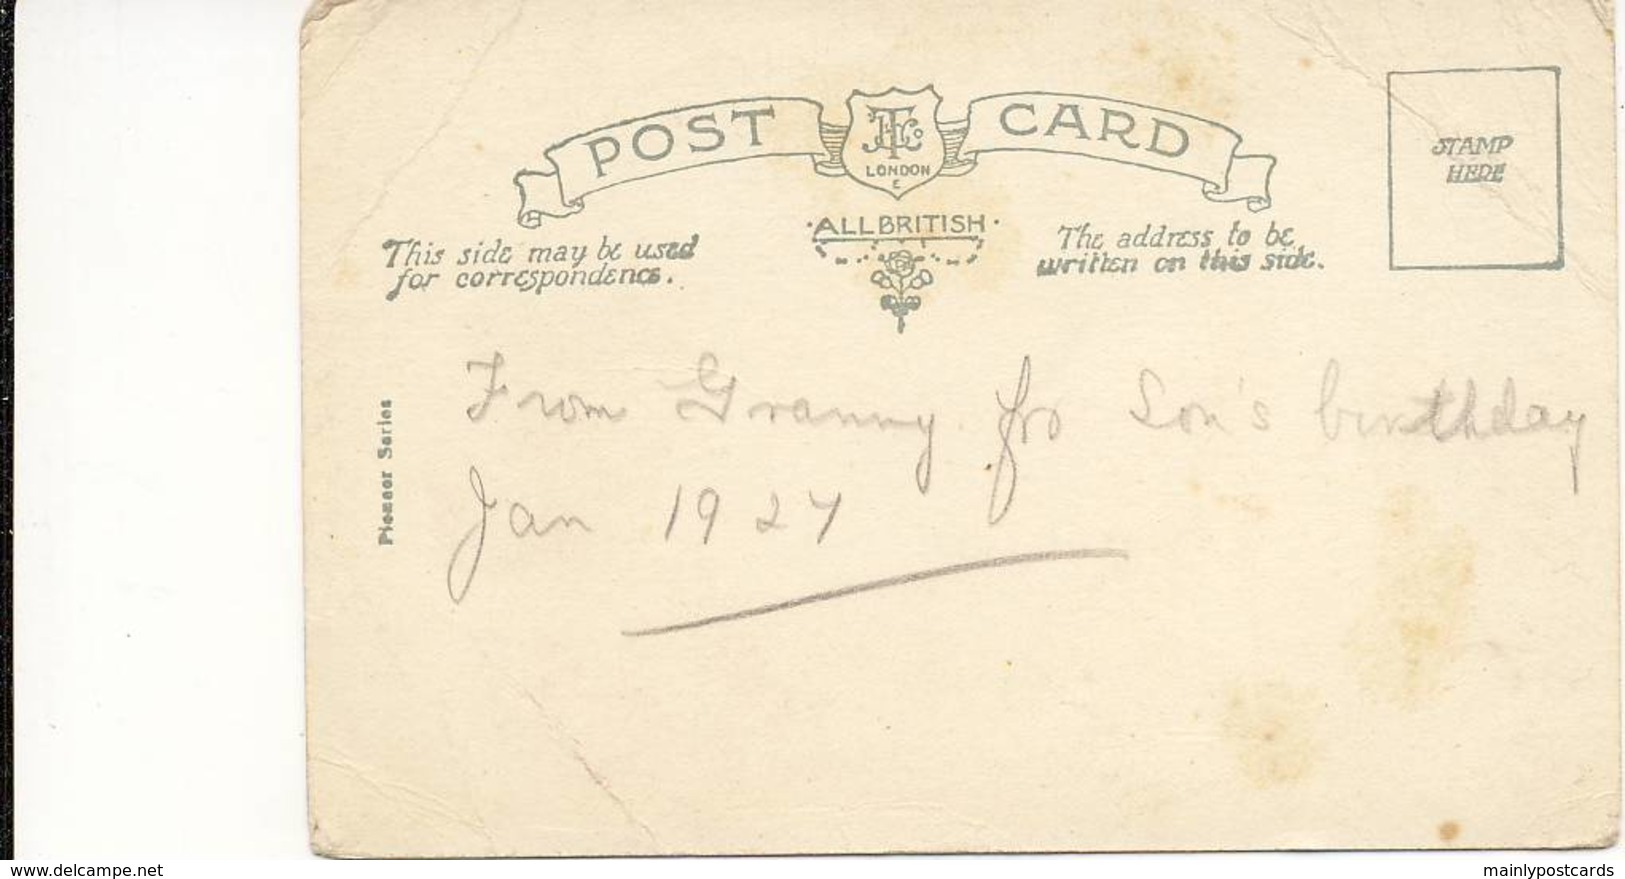 POST CARD
JTCo
LONDON
E
ALL BRITISH
This side may be used
for correspondence.
The address to be
written on this side.
STAMP
HERE
Pioneer Series
From Granny fro Son's birthday
Jan 1927
delcampe.net
mainlypostcards